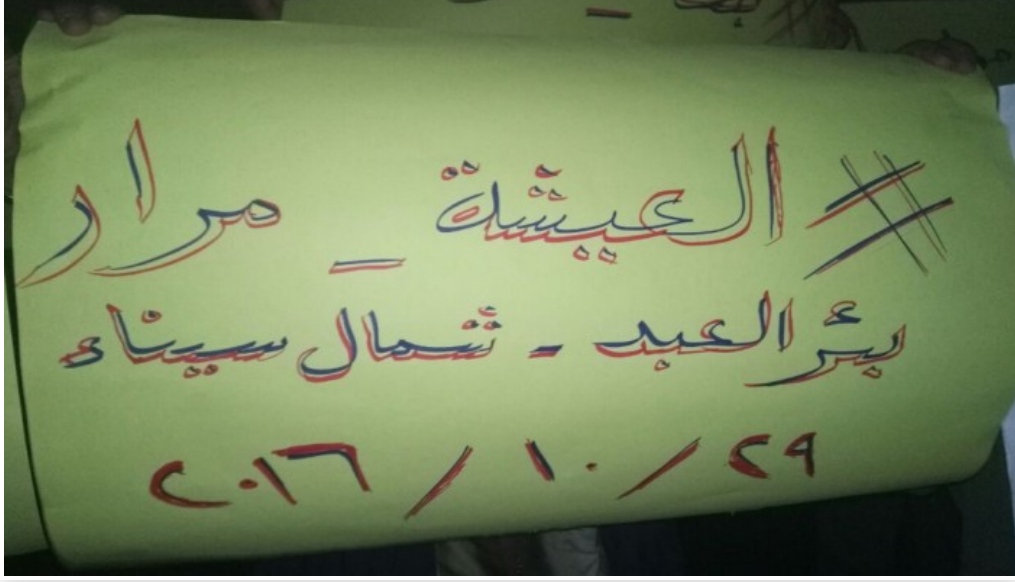 #العيشة_مرار
بئر العبد - شمال سيناء
٢٩/١٠/٢٠١٦